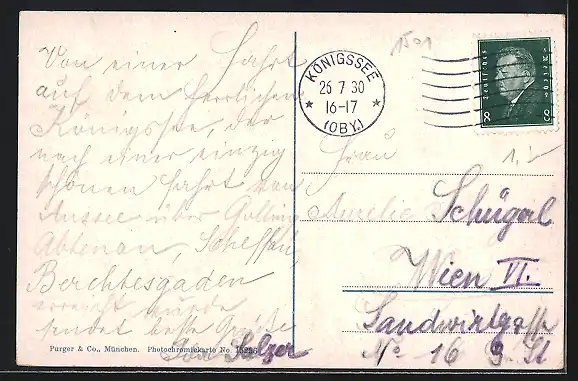 Von einer Fahrt
auf dem herrlichen
Königssee, der
nach einer einzig
schönen Fahrt von
Aussee über Golling
Abtenau, Scheffau,
Berchtesgaden
erreicht wurde
sendet beste Grüße
Salzer
Purger & Co., München. Photochromiekarte No.
1501
KÖNIGSSEE
26 7 30
16-17
(OBY.)
Deutsches Reich
8 8
1,-
Frau
Aurelie Schügal
Wien VI.
Landwirtgasse
No 16 3. St